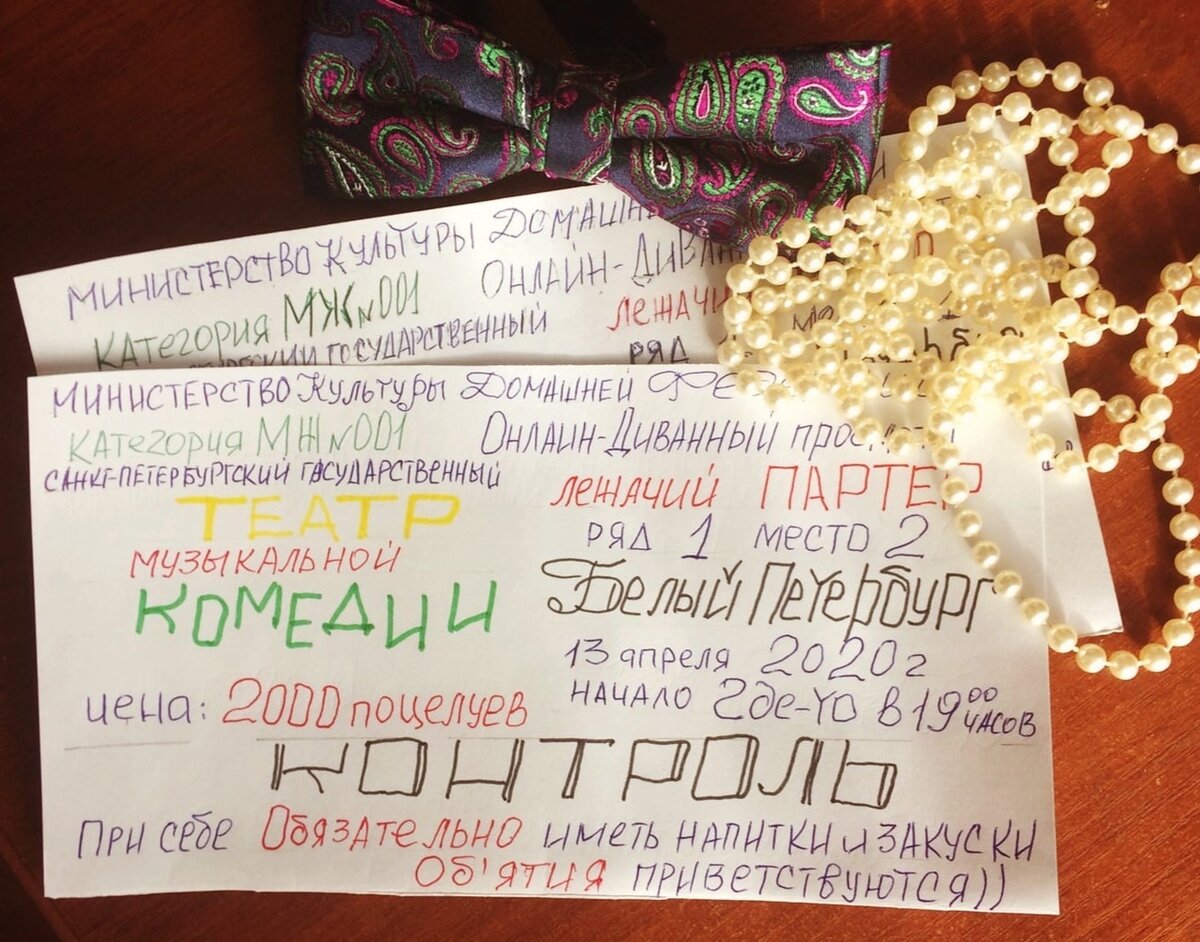 Министерство Культуры
Категория МЖ №001
Онлайн-
государственный
ряд
Министерство Культуры Домашней
Категория МЖ №001
Онлайн-Диванный
Санкт-Петербургский государственный
ТЕАТР
музыкальной
КОМЕДИИ
лежачий ПАРТЕР
ряд 1 место 2
Белый Петербург
13 апреля 2020 г
начало где-то в 19 00 часов
цена: 2000 поцелуев
КОНТРОЛЬ
При себе Обязательно иметь напитки и закуски
Об'ятия приветствуются))